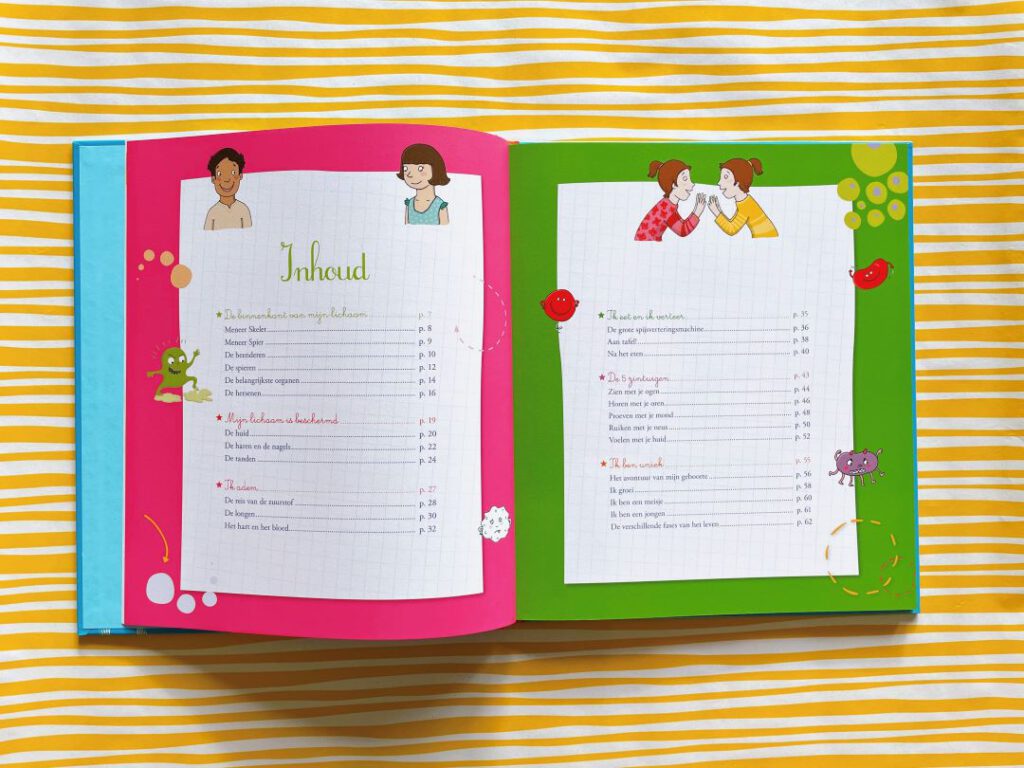 Inhoud
De binnenkant van mijn lichaam p. 7
Meneer Skelet p. 8
Meneer Spier p. 9
De beenderen p. 10
De spieren p. 12
De belangrijkste organen p. 14
De hersenen p. 16
Mijn lichaam is beschermd p. 19
De huid p. 20
De haren en de nagels p. 22
De tanden p. 24
Ik adem p. 27
De reis van de zuurstof p. 28
De longen p. 30
Het hart en het bloed p. 32
Ik eet en ik verteer p. 35
De grote spijsverteringsmachine p. 36
Aan tafel! p. 38
Na het eten p. 40
De 5 zintuigen p. 43
Zien met je ogen p. 44
Horen met je oren p. 46
Proeven met je mond p. 48
Ruiken met je neus p. 50
Voelen met je huid p. 52
Ik ben uniek p. 55
Het avontuur van mijn geboorte p. 56
Ik groei p. 58
Ik ben een meisje p. 60
Ik ben een jongen p. 61
De verschillende fases van het leven p. 62